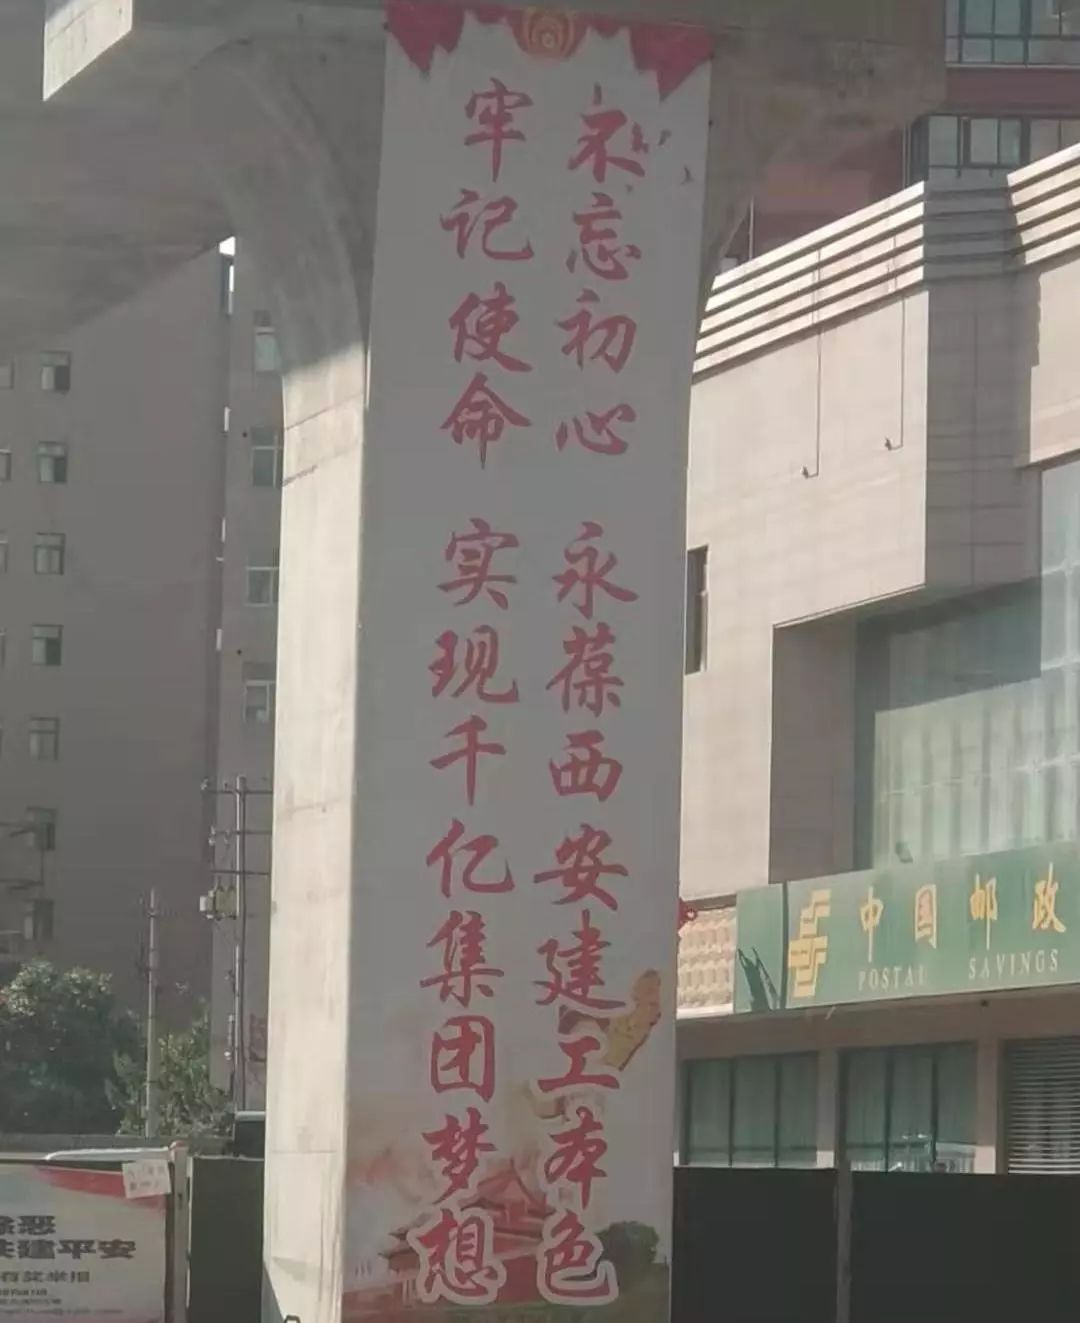 不忘初心 永葆西安建工本色
牢记使命 实现千亿集团梦想
中国邮政
POSTAL SAVINGS
建平安
有奖举报